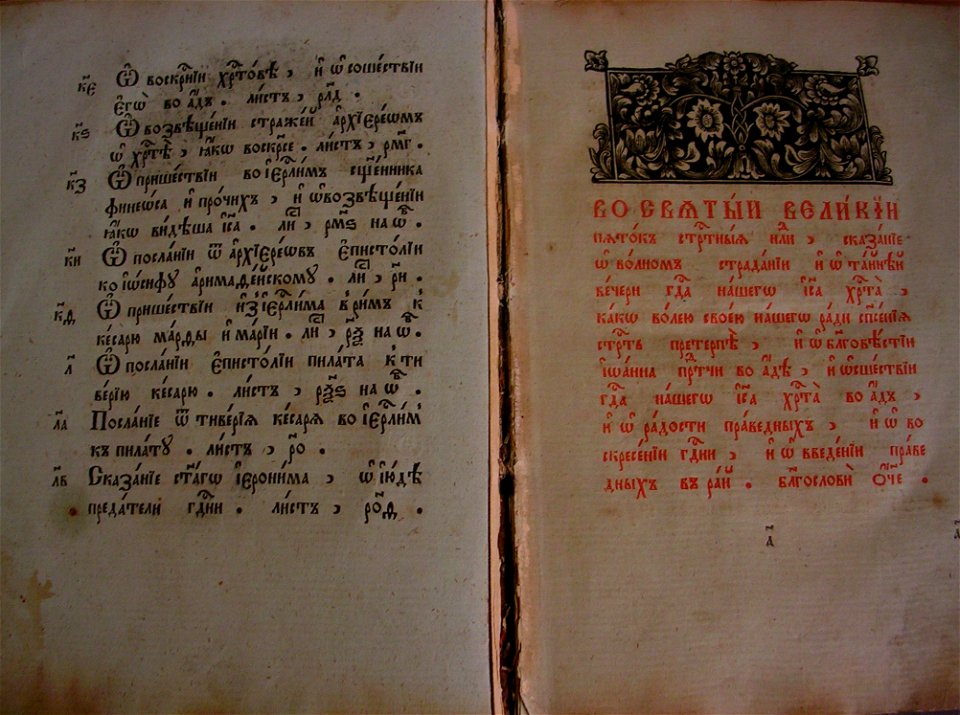 к҃є Ѿ воскр҃нїи хр҃то́вѣ , и҆ ѡ҆ соше́ствїи
є҆гѡ̀ во а҆́дъ . ли́стъ , рл҃д .
к҃ѕ Ѿ возвѣще́нїи страже́й а҆рхїере́ѡмъ
ѡ҆ хр҃тѣ̀ , ꙗ҆́кѡ воскр҃се . ли́стъ , рм҃г .
к҃з Ѿ прише́ствїи во і҆ер҃ли́мъ сщ҃е́нника
финеѡ́са и҆ про́чихъ , и҆ ѡ҆ возвѣще́нїи
ꙗ҆́кѡ ви́дѣша і҆и҃са . ли́ , рм҃ѕ на ѡ҆б .
к҃и Ѿ посла́нїи ѿ а҆рхїере́ѡвъ є҆писто́лїи
ко і҆ѡ́сифу а҆римаде́йскому . ли́ , рн҃ .
к҃д Ѿ прише́ствїи и҆з̾ і҆ер҃ли́ма в̾ ри́мъ к̾
ке́сарю ма́рѳы и҆ марі́и . ли́ , рѯ҃ на ѡ҆б .
л҃ Ѿ посла́нїи є҆писто́лїи пила́та к̾ ти
ве́рїю ке́сарю . ли́стъ , рѯ҃ѕ на ѡ҆б .
л҃а Посла́нїе ѿ тиве́рїѧ ке́сарѧ во і҆ер҃ли́м̾
къ пила́ту . ли́стъ , ро҃ .
л҃в Сказа́нїе ст҃а́гѡ і҆ерони́ма , ѡ҆ і҆ю́дѣ
преда́тели гд҃ни . ли́стъ , ро҃д .
ВО СВѦТЫ́Й ВЕЛИ́КЇЙ
пѧто́къ стр҃тны́ѧ нд҃ли , сказа́нїе
ѡ҆ во́лномъ страда́нїи и҆ ѡ҆ та́йнѣй
ве́чери гд҃а на́шегѡ і҆и҃са хр҃та̀ ,
ка́кѡ во́лею свое́ю на́шегѡ ра́ди сп҃се́нїѧ
стр҃ть претерпѣ̀ , и҆ ѡ҆ бл҃говѣ́стїи
і҆ѡа́нна пр҃тчи во а҆́дѣ , и҆ ѡ҆ сше́ствїи
гд҃а на́шегѡ і҆и҃са хр҃та̀ во а҆́дъ ,
и҆ ѡ҆ ра́дости пра́ведныхъ , и҆ ѡ҆ во
скресе́нїи гд҃ни , и҆ ѡ҆ введе́нїи пра́ве
дныхъ въ ра́й . бл҃гослови̇̀ ѻ҆́ч҃е .
а҃